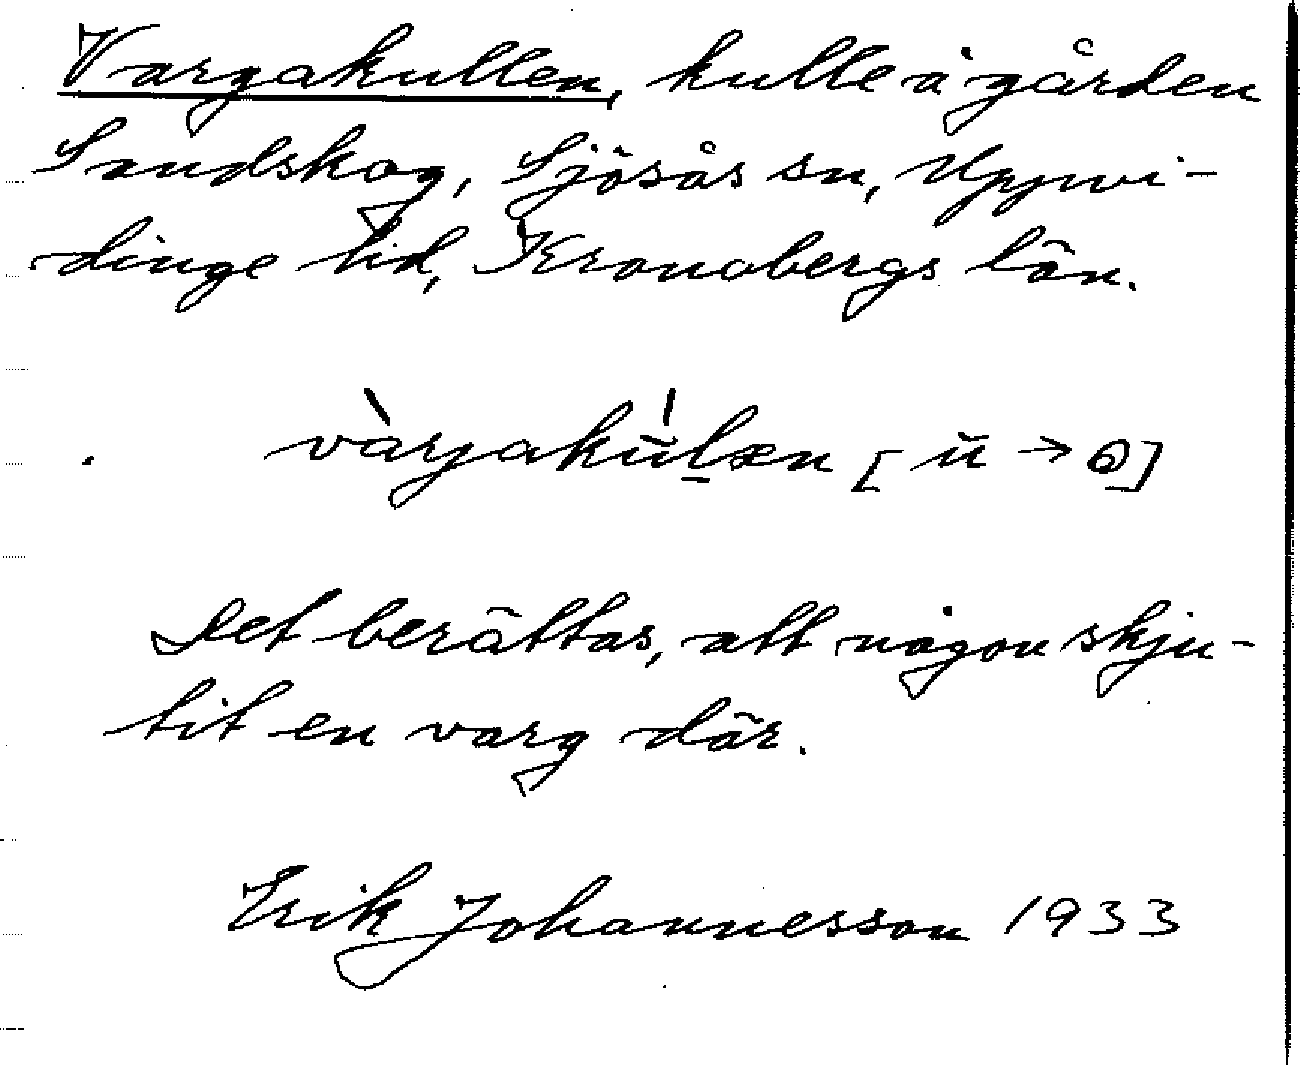 Vargakullen, kulle å gården
Sandskog, Sjösås sn, Uppvi-
dinge hd, Kronobergs län.
vàrgakŭ́læn [ŭ → ɷ]
Det berättas, att någon skju-
tit en varg där.
Erik Johannesson 1933